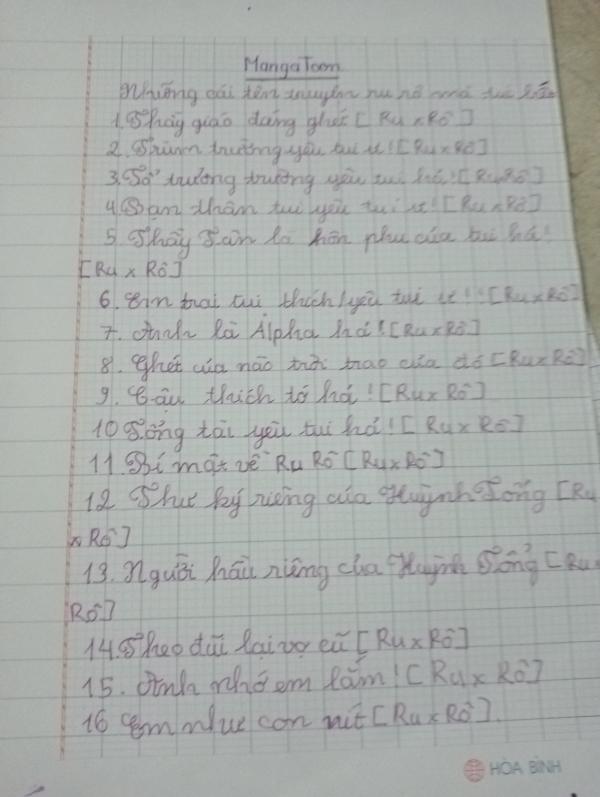 MangaToon
Những cái tên truyện ru rô mà tui
1. Thầy giáo đáng ghét [Ru x Rô]
2. Trùm trường yêu tui ư! [Ru x Rô]
3. Tổ trưởng trường yêu tui há! [Ru x Rô]
4. Bạn thân tui yêu tui ư! [Ru x Rô]
5. Thầy Tân là hôn phu của tui há!
[Ru x Rô]
6. Em trai tui thích/yêu tui ư!! [Ru x Rô]
7. Anh là Alpha há! [Ru x Rô]
8. Ghét của nào trời trao của đó [Ru x Rô]
9. Cậu thích tớ há! [Ru x Rô]
10 Tổng tài yêu tui há! [Ru x Rô]
11. Bí mật về Ru Rô [Ru x Rô]
12. Thư ký riêng của Huỳnh Tổng [Ru
x Rô]
13. Người hầu riêng của Huỳnh Tổng [Ru x
Rô]
14. Theo đuổi lại vợ cũ [Ru x Rô]
15. Anh nhớ em lắm! [Ru x Rô]
16 Em như con nít [Ru x Rô].
HÒA BÌNH